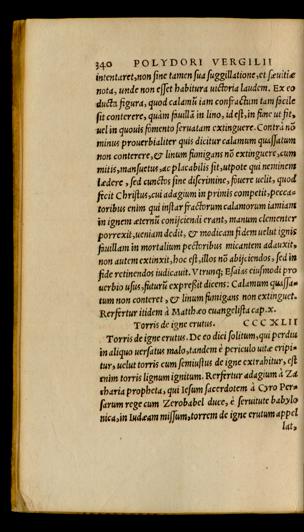 340 POLYDORI VERGILII
intentaret, non sine tamen sua suggillatione, et sæuitiæ
nota, unde non esset habitura uictoria laudem. Ex eo
ducta figura, quod calamũ iam confractum tam facile
sit conterere, quàm fauillã in lino, id est, in fune ut fit,
uel in quouis fomento seruatam extinguere. Contrà nõ
minus prouerbialiter quis dicitur calamum quassatum
non conterere, & linum fumigans nõ extinguere, cum
mitis, mansuetus, ac placabilis sit, utpote qui neminem
lædere, sed cunctos sine discrimine, fouere uelit, quod
fecit Christus, cui adagium in primis competit, pecca-
toribus enim qui instar fractorum calamorum iamiam
in ignem æternũ conijciendi erant, manum clementer
porrexit, ueniam dedit, & modicam fidem uelut ignis
fauillam in mortalium pectoribus micantem adauxit,
non autem extinxit, hoc est, illos nõ abijciendos, sed in
fide retinendos iudicauit. Vtrunq; Esaias eiusmodi pro
uerbio usus, futurũ expressit dicens: Calamum quassa-
tum non conteret, & linum fumigans non extinguet.
Rerfertur itidem à Matthæo euangelista cap.x.
Torris de igne erutus. CCCXLII
Torris de igne erutus. De eo dici solitum, qui perdiu
in aliquo uersatus malo, tandem è periculo uitæ eripi-
tur, uelut torris cum semiustus de igne extrahitur, est
enim torris lignum ignitum. Rerfertur adagium à Za
charia propheta, qui Iesum sacerdotem à Cyro Per-
sarum rege cum Zorobabel duce, è seruitute babylo
nica, in Iudæam missum, torrem de igne erutum appel
lat,